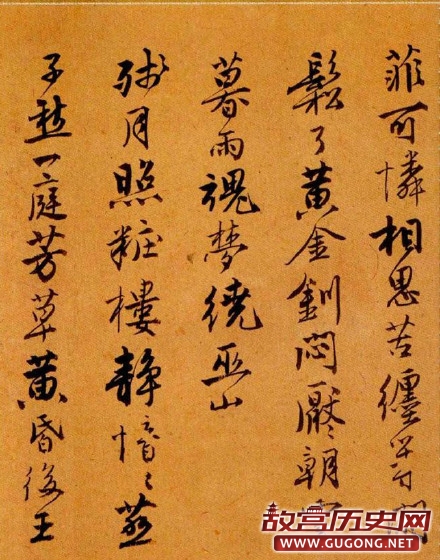 菲可憐相思苦纏
鬆了黄金釧悶厭〻朝
暮雨魂夢繞巫山
残月照粧樓静愔〻燕
子愁一庭芳草黄昏後王
故宫历史网
WWW.GUGONG.NET